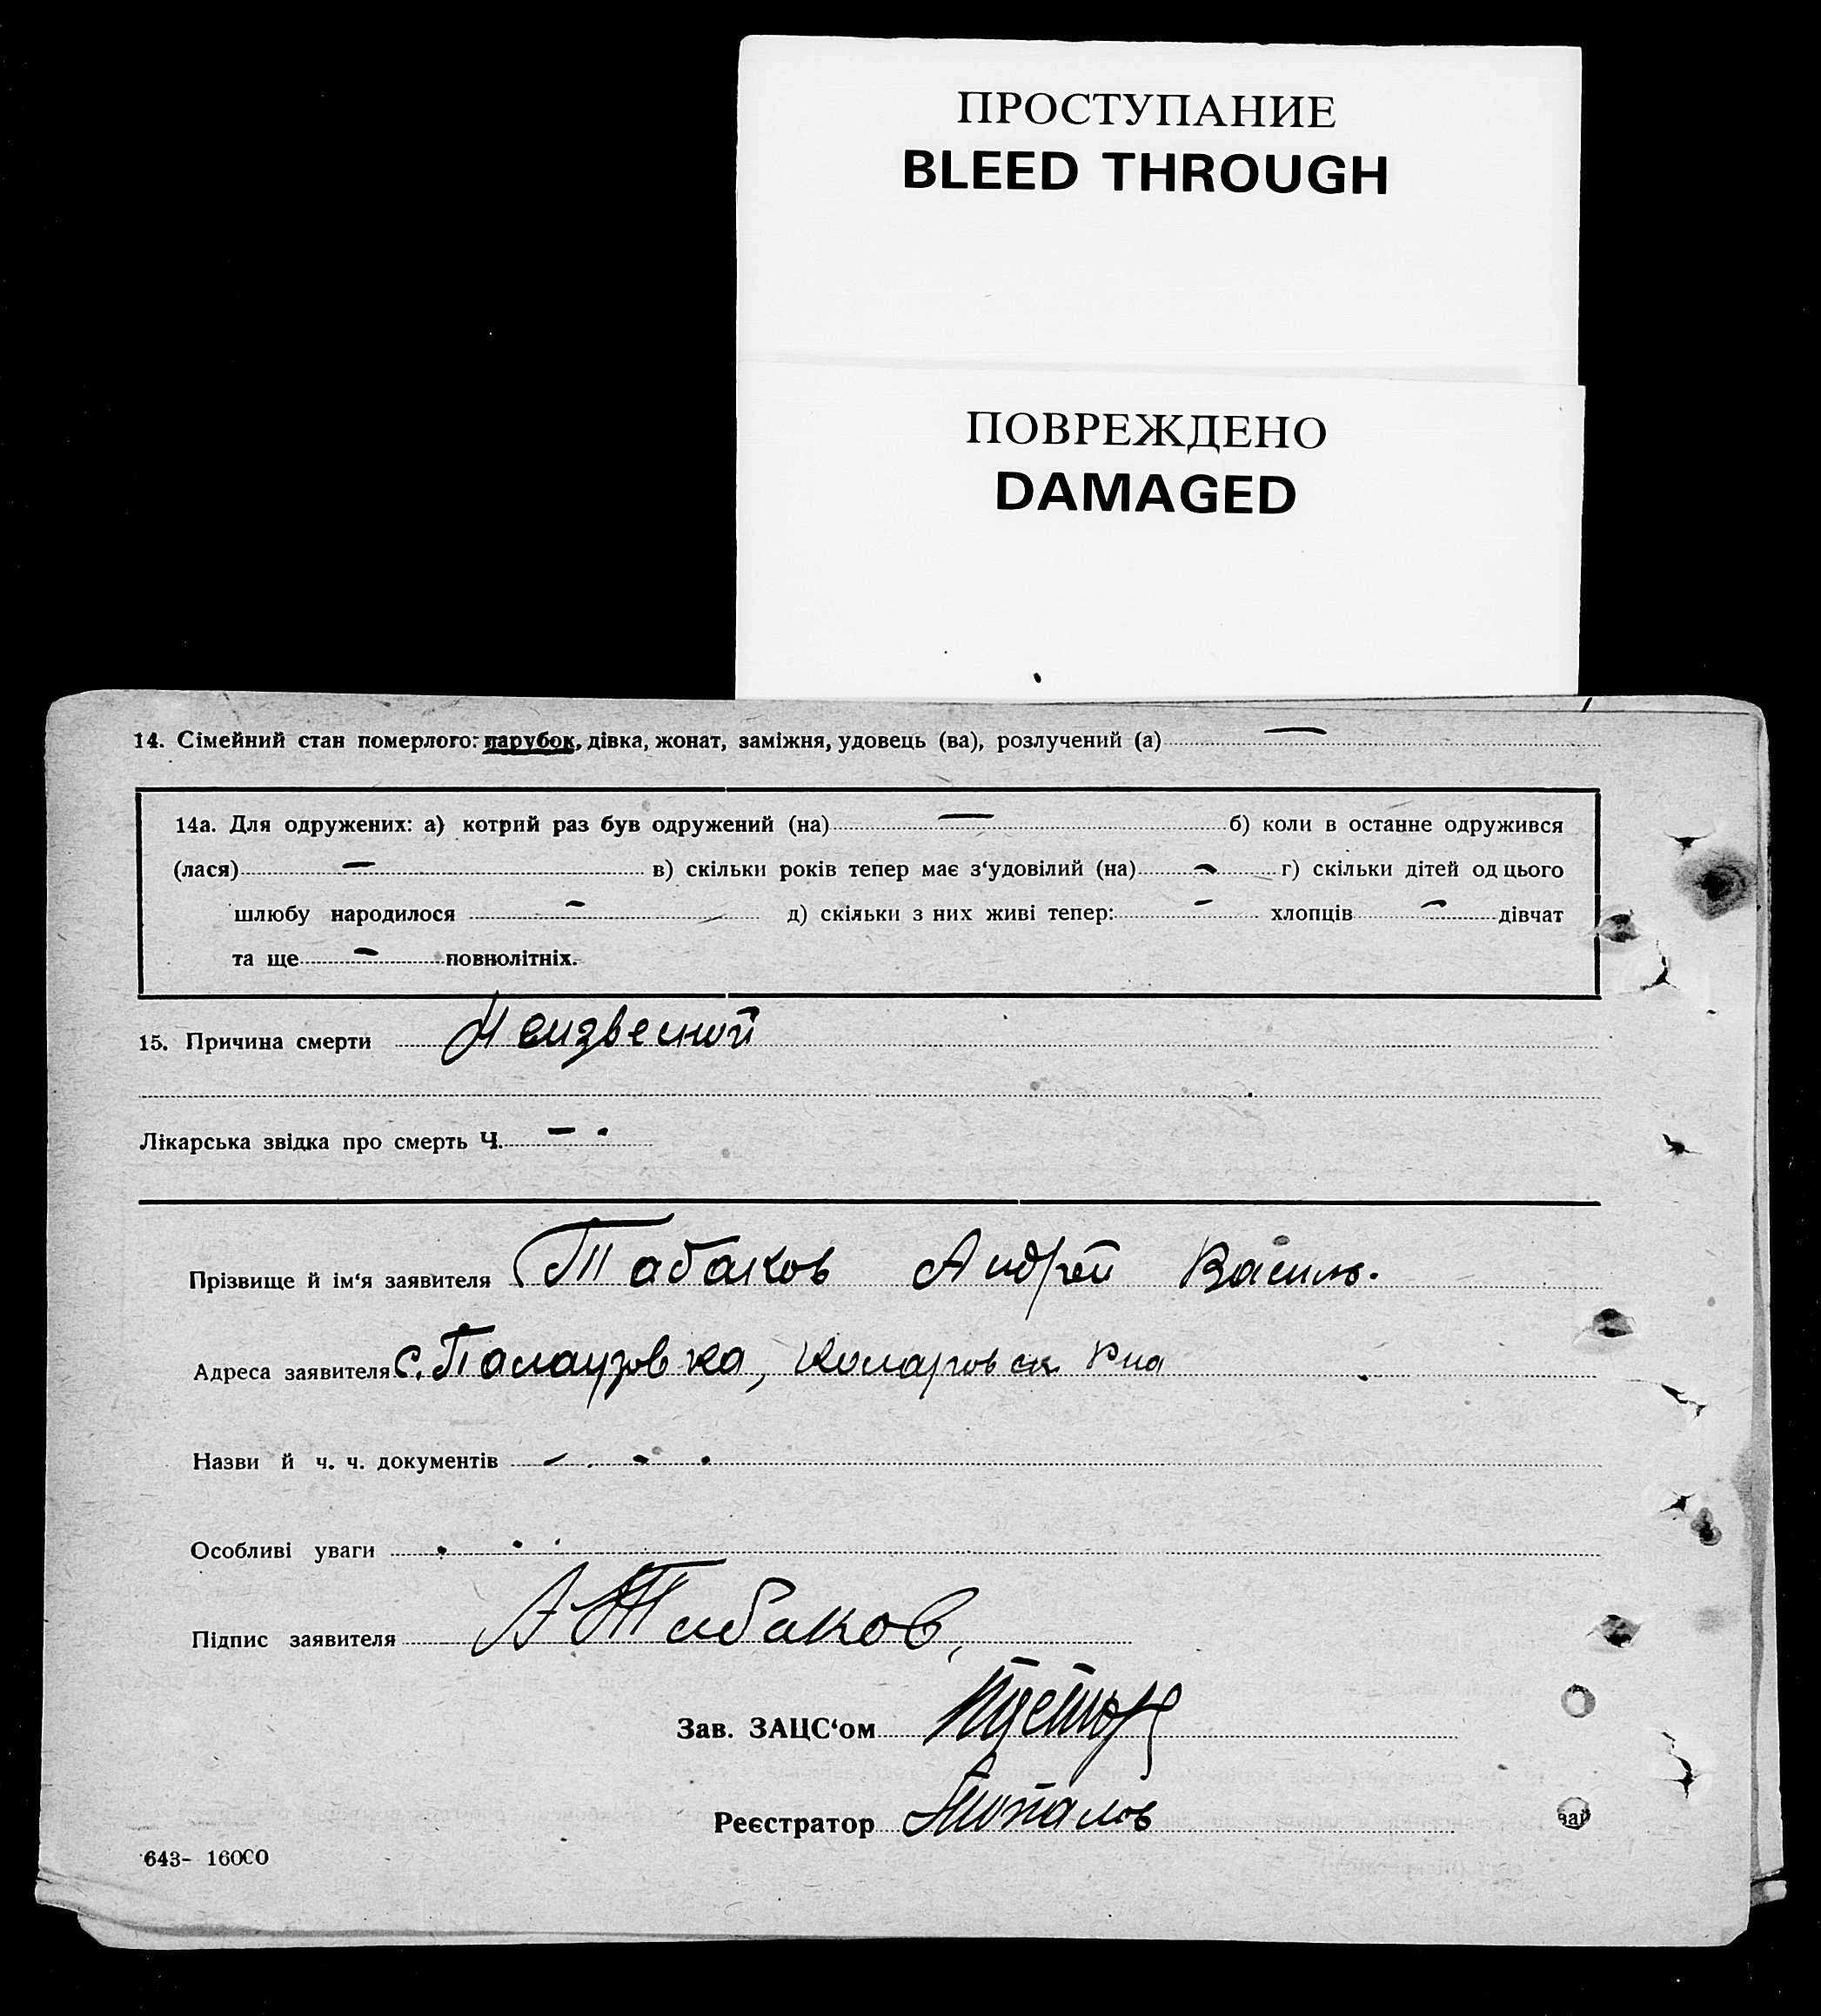 ПРОСТУПАНИЕ
BLEED THROUGH
ПОВРЕЖДЕНО
DAMAGED
14. Сімейний стан померлого: парубок, дівка, жонат, заміжня, удовець (ва), розлучений (а) —
14а. Для одружених: а) котрий раз був одружений (на) — б) коли в останнє одружився
(лася) — в) скільки років тепер має з‘удовілий (на) — г) скільки дітей од цього
шлюбу народилося — д) скільки з них живі тепер: — хлопців — дівчат
та ще — повнолітніх.
15. Причина смерти Неизвесной
Лікарська звідка про смерть Ч. —
Прізвище й ім‘я заявителя Табаков Андрей Василь.
Адреса заявителя с. Палаузовка, Коларовск Р-на
Назви й ч. ч. документів —
Особливі уваги
Підпис заявителя А Табаков
Зав. ЗАЦС‘ом
Реєстратор Топалов
зай
643- 16000